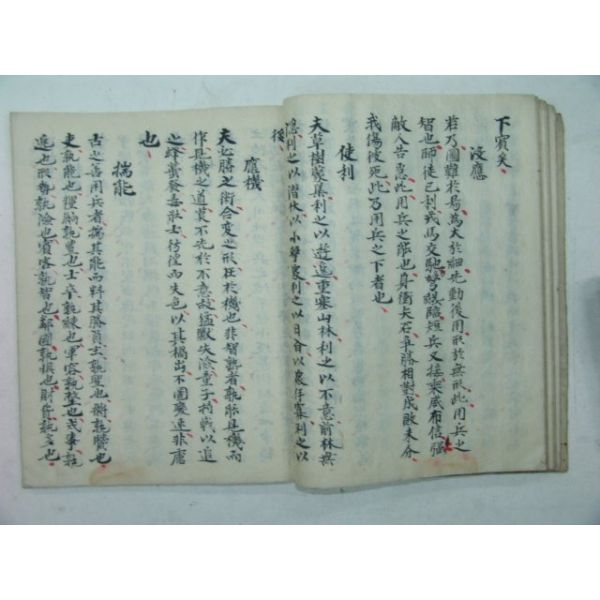 下實矣
後應
若乃圖難於易爲大於細先動後用形於無形此用兵之
智也師徒已列戎馬交馳弩臨短兵又接乘威布信强
敵人告急此用兵之能也身衝矢石勝相對成敗未分
我傷彼死此乃用兵之下者也
便利
夫草樹叢集利之以遊逸重塞山林利之以不意前林無
隱利之以潛伏以小擊衆利之以日合以衆寡利之以
後
應機
夫必勝之術合變之形在於機也非智者孰能見機而
作見機之道莫不先於不意故猛獸失險童子持戟以追
之蜂蠆發毒壯士彷徨而失色以其禍出不圖變速非慮
也
揣能
古之善用兵者揣其能而料其勝負主孰聖也將孰賢也
吏孰能也糧餉孰豊也士卒孰練也軍容孰整也戎事孰
逸也形勢孰險也賓客孰智也鄰國孰懼也財貨孰多也